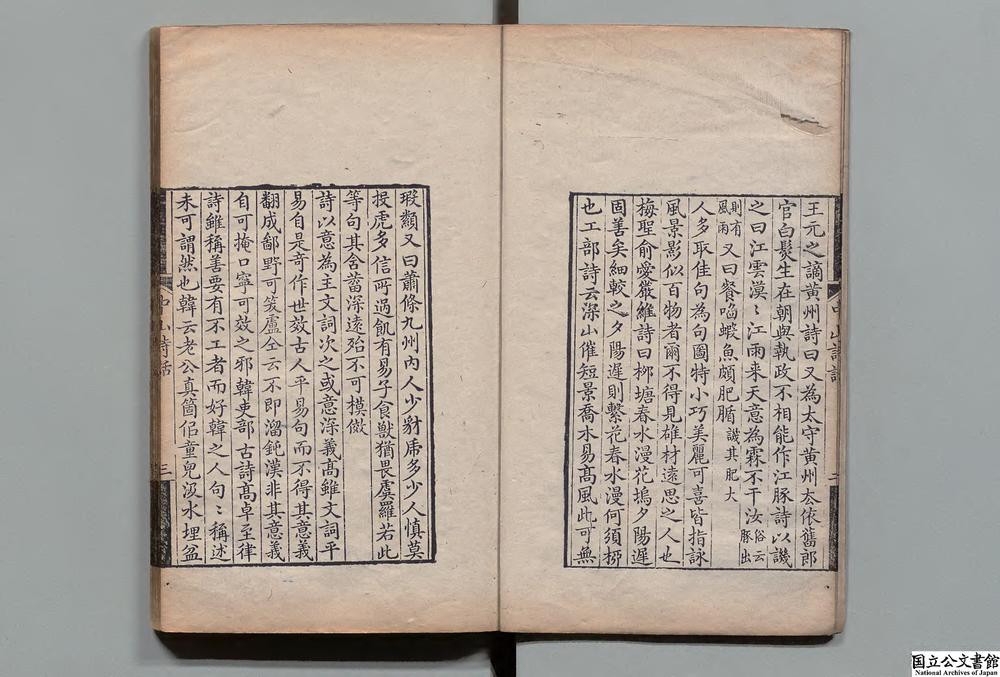 王元之謫黃州詩曰又為太守黃州去依舊郎
官白髮生在朝與執政不相能作江豚詩以譏
之曰江雲漠〻江雨来天意為霖不干汝俗云豚出
則有風雨又曰餐啗蝦魚頗肥腯譏其肥大
人多取佳句為句圖特小巧美麗可喜皆指詠
風景影似百物者爾不得見雄材遠思之人也
梅聖俞愛嚴維詩曰栁塘春水漫花塢夕陽遲
固善矣細較之夕陽遲則繫花春水漫何須栁
也工部詩云深山催短景喬木易髙風此可無
瑕纇又曰蕭條九州內人少豺虎多少人慎莫
投虎多信所過飢有易子食獸猶畏虞羅若此
等句其含蓄深遠殆不可模倣
詩以意為主文詞次之或意深義髙雖文詞平
易自是奇作世效古人平易句而不得其意義
翻成鄙野可笑盧仝云不即溜鈍漢非其意義
自可掩口寧可效之邪韓吏部古詩髙卓至律
詩雖稱善要有不工者而好韓之人句〻稱述
未可謂然也韓云老公真箇佀童兒汲水埋盆
中山詩話
三
中山詩話
国立公文書館
National Archives of Japan